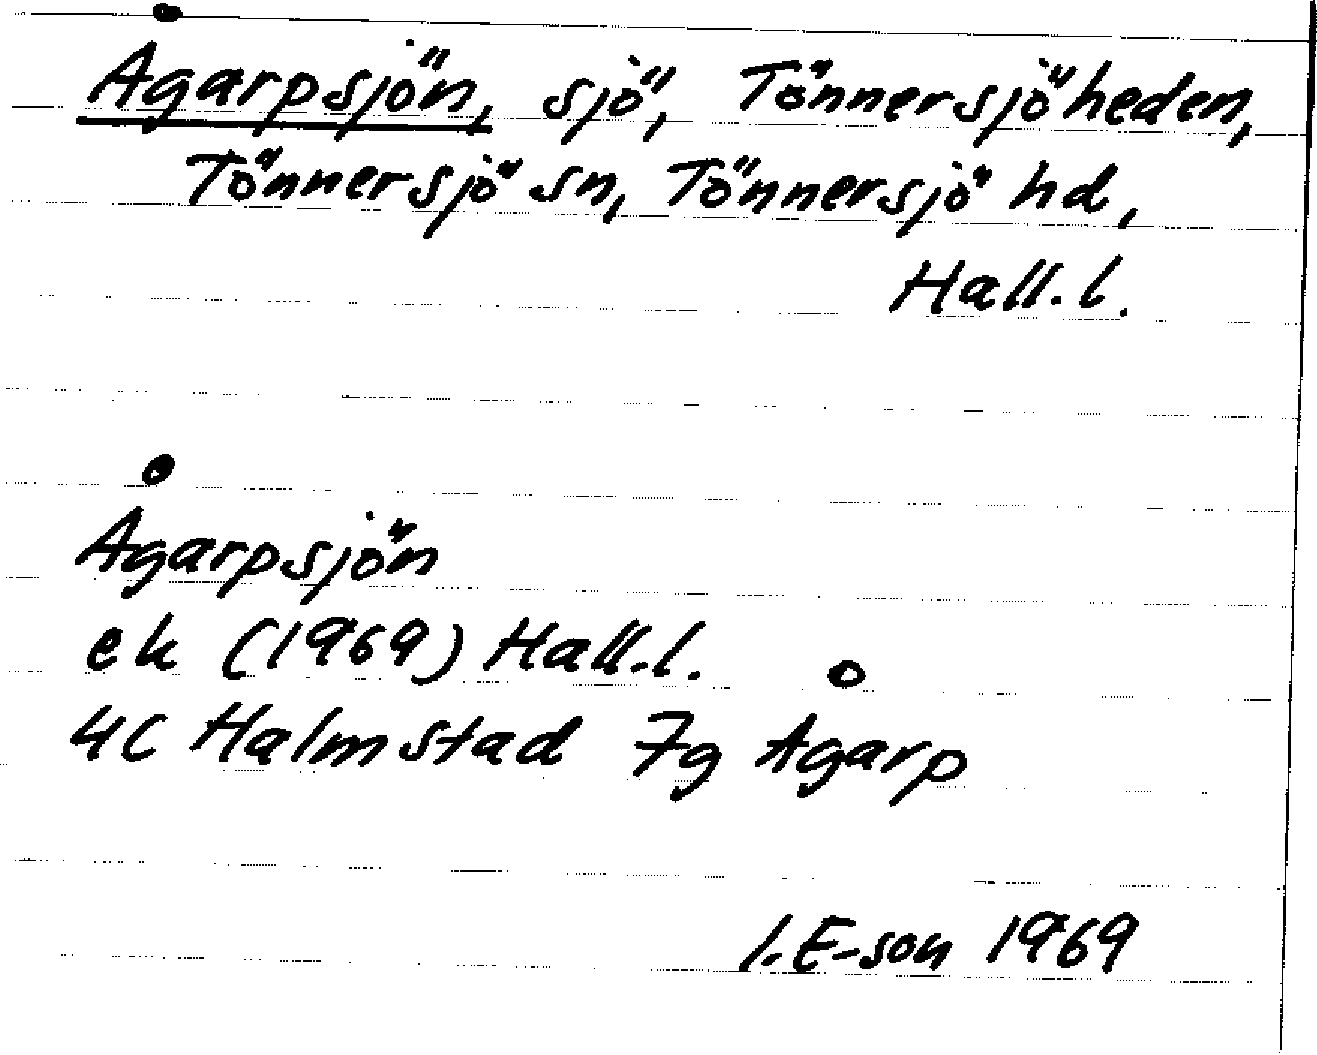 Ågarpsjön, sjö, Tönnersjöheden,
Tönnersjö sn, Tönnersjö hd,
Hall.l.
Ågarpsjön
ek (1969) Hall.l.
4C Halmstad 7g Ågarp
I.E-son 1969